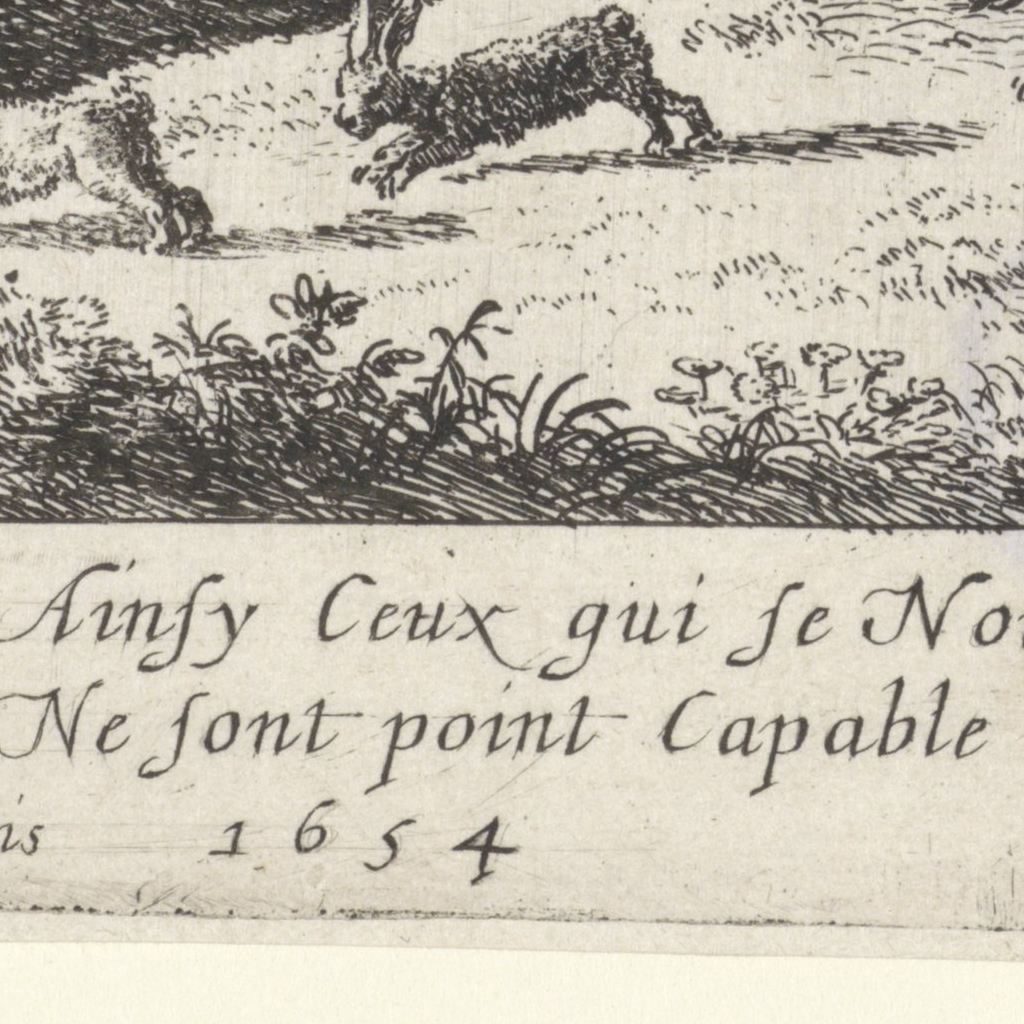 Ainſy Ceux qui ſe No
Ne ſont point Capable
is 1654